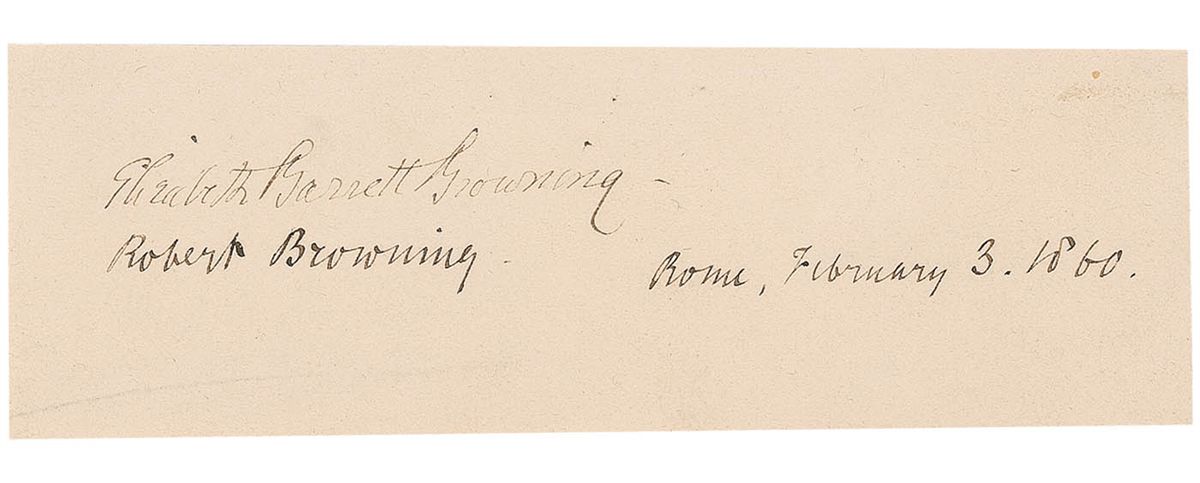 Elizabeth Barrett Browning -
Robert Browning. Rome, February 3. 1860.